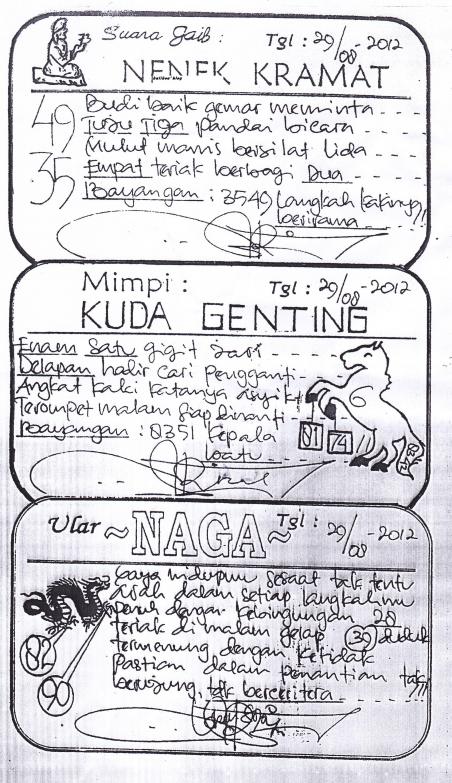 Suara Gaib : Tgl : 29/08-2012
NENEK KRAMAT
49
35
Budi baik gemar meminta
Tuju Tiga pandai bicara
Mulut manis bersilat lida
Empat teriak berbagi Dua
Bayangan : 3549 Langkah kakinya!!
berirama
Mimpi : Tgl : 29/08-2012
KUDA GENTING
Enam Satu gigit Jari
Delapan hadir cari Pengganti
Angkat kaki katanya asyik
Terompet malam siap dinanti
Bayangan : 0351 Kepala
batu
6
01 74
Ular ~NAGA~ Tgl : 29/08-2012
Gaya hidupmu sesaat tak tentu
arah dalam setiap langkahmu
Penuh dengan kebingungan 28
teriak di malam gelap 39 duduk
Termenung dengan Ketidak
Pastian dalam penantian tak
berujung, tak berceritera !!!
82
90